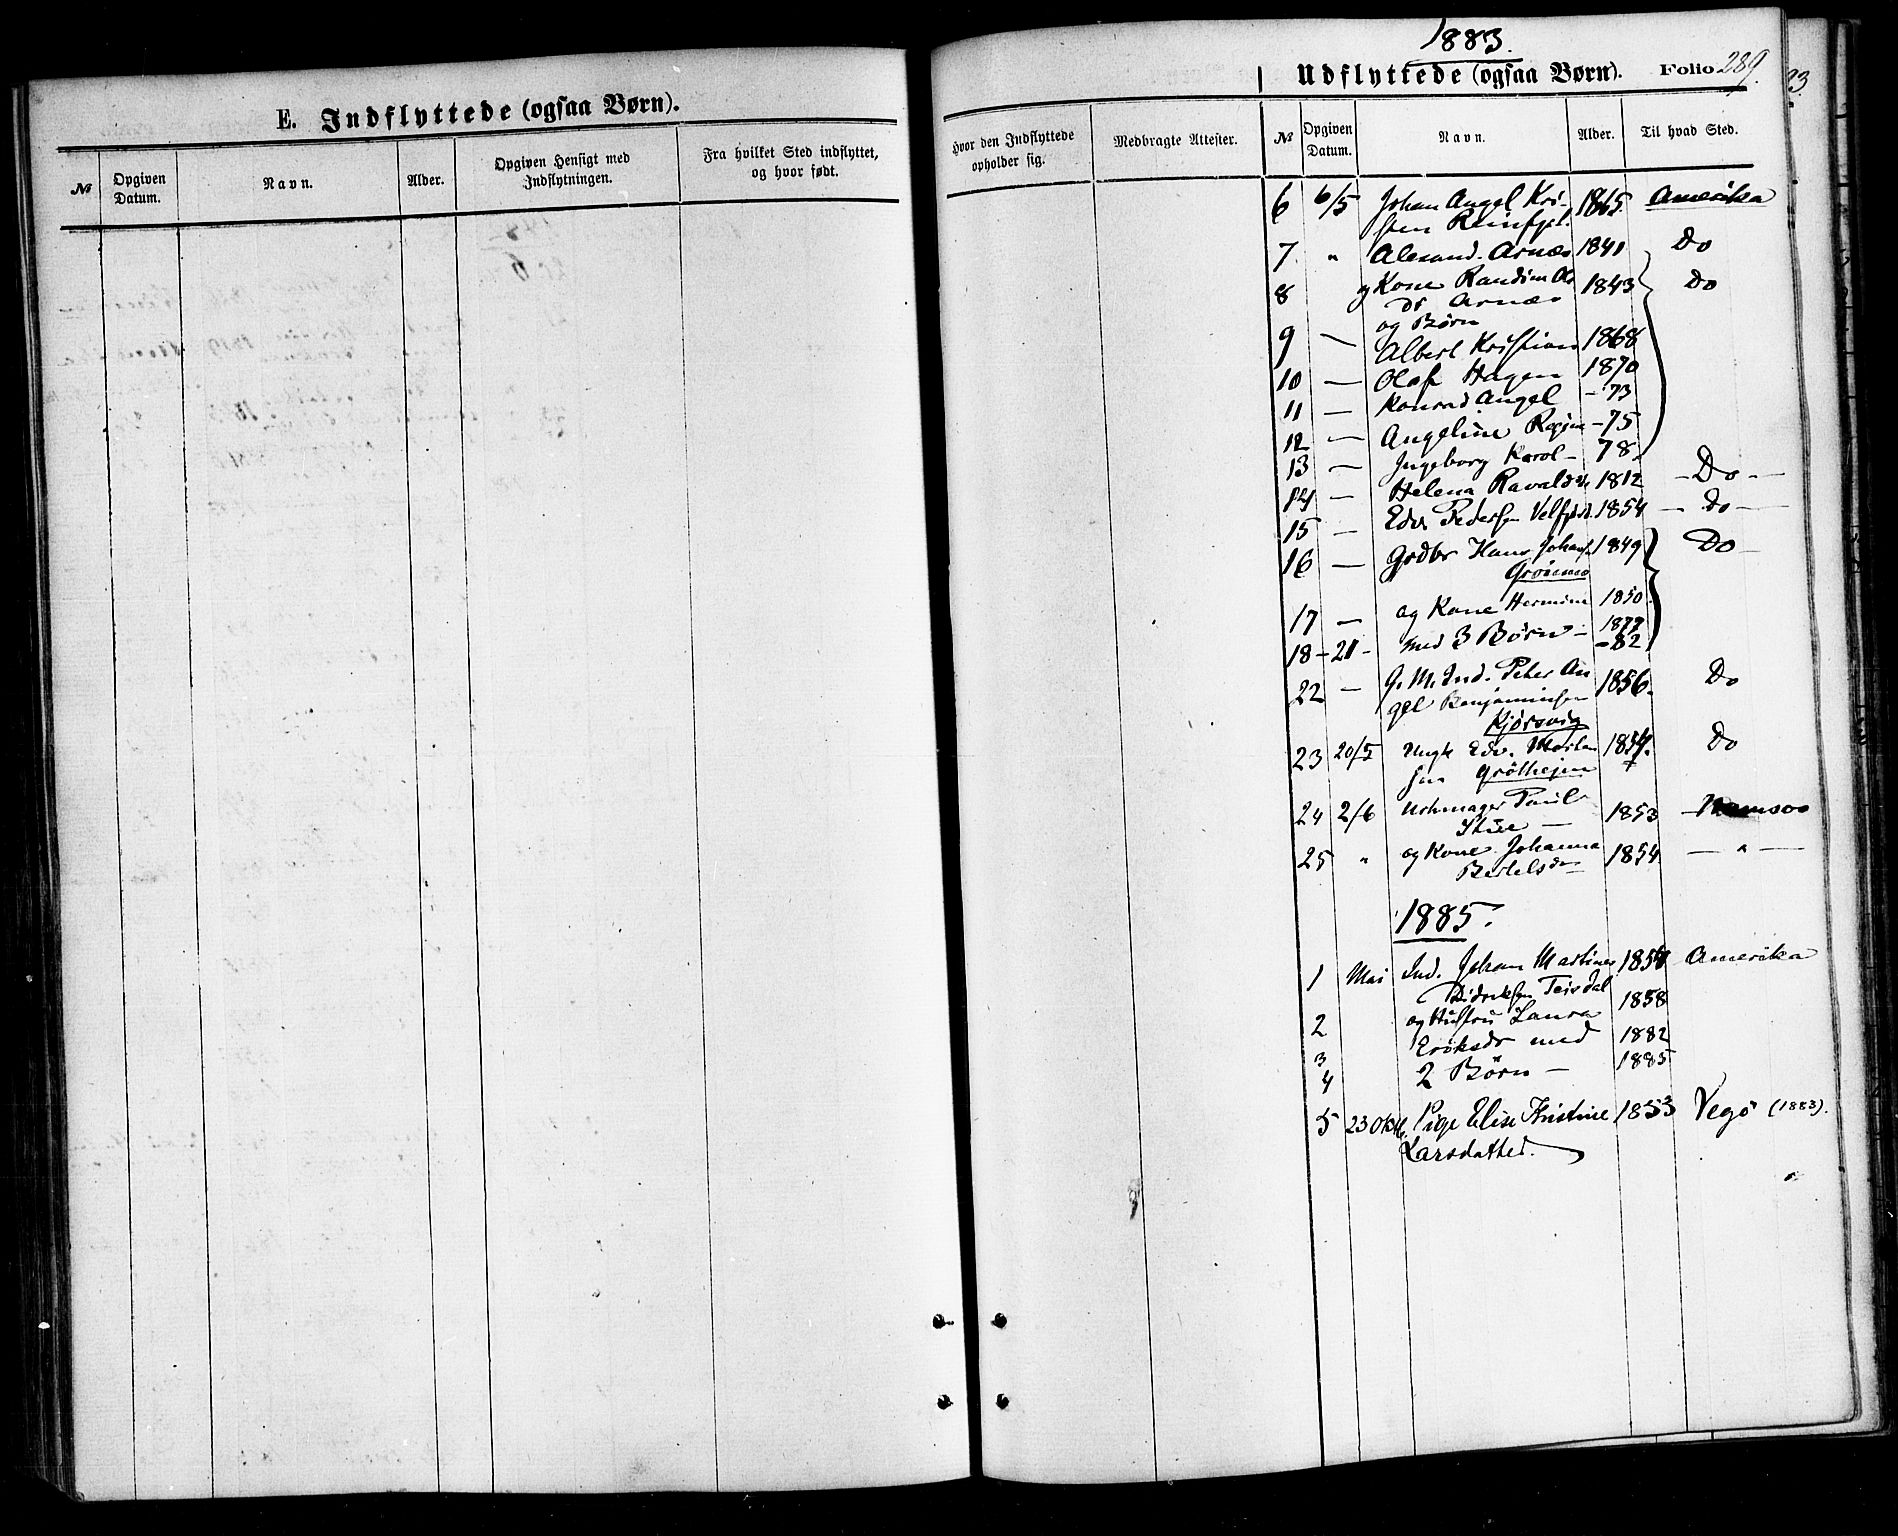 E. Indflyttede (ogsaa Børn).
№ Opgiven Datum. Navn. Alder. Opgiven Hensigt med Indflytningen. Fra hvilket Sted indflyttet, og hvor født.
1883.
Udflyttede (ogsaa Børn). Folio 289.
Hvor den Indflyttede opholder sig. Medbragte Attester. № Opgiven Datum. Navn. Alder. Til hvad Sted.
6 6/5 Johan Angel Kri- 1865. Amerika
sten Reinfjel.
7. " Alexand. Arnæs 1841 Do
8 og Kone Randine Ols 1843 Do
dr Arnæs
og Børn
9 — Albert Kristian 1868
10 — Olaf Hagen 1870
11 — Konrad Angel - 73
12 — Angeline Regine - 75
13 — Ingeborg Karol - 78
14 — Helena Ravaldsdr 1812 - Do -
15 — Edv. Pedersen Velfjord. 1854 - Do -
16 — Grdbr Hans Johans. 1849 Do -
Grönmo
17 — og Kone Hermine 1850
18 - 21 - med 3 Børn - 1877
- 82
22 — G. M. Ind. Peter An 1856. Do
gel Benjaminsen
Kjörsvig
23 20/5 Ungk Edv. Morten 1857. Do
sen Grötheim
24 2/6 Urhmager Paul 1853 - Namsos
Stue —
25 " og Kone Johanna 1854 — " —
Bertelsdr
1885.
1 Mai Ind. Johan Martines 1854 Amerika
Didriksen Teisdal
2 og Hustru Laura 1858
Eriksdr med 1882
3 2 Børn — 1885
4
5 23 Okt. Pige Elise Kristine 1853 Vegø (1883).
Larsdatter.